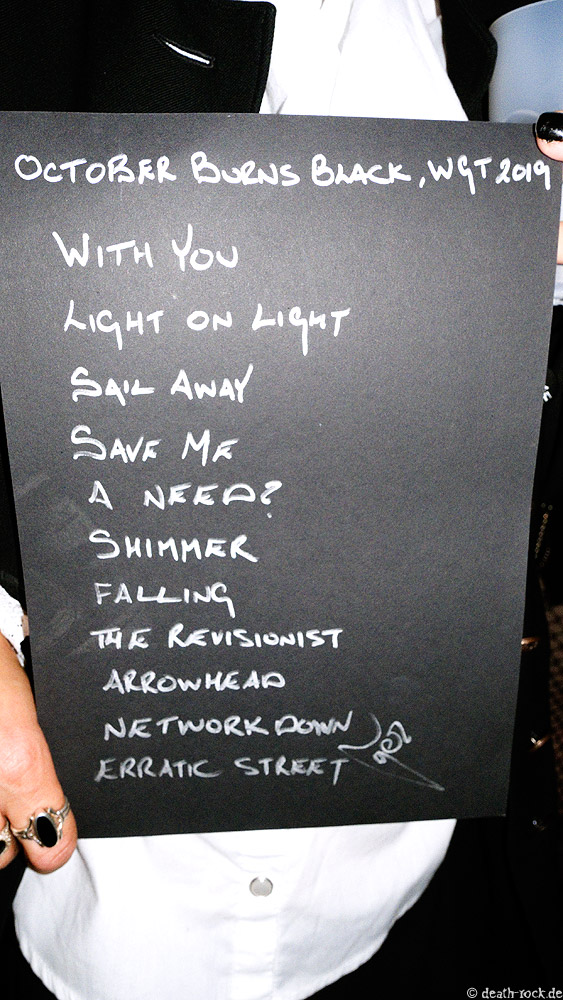 OCTOBER BURNS BLACK, WGT 2019
WITH YOU
LIGHT ON LIGHT
SAIL AWAY
SAVE ME
A NEED?
SHIMMER
FALLING
THE REVISIONIST
ARROWHEAD
NETWORK DOWN
ERRATIC STREET
© death-rock.de